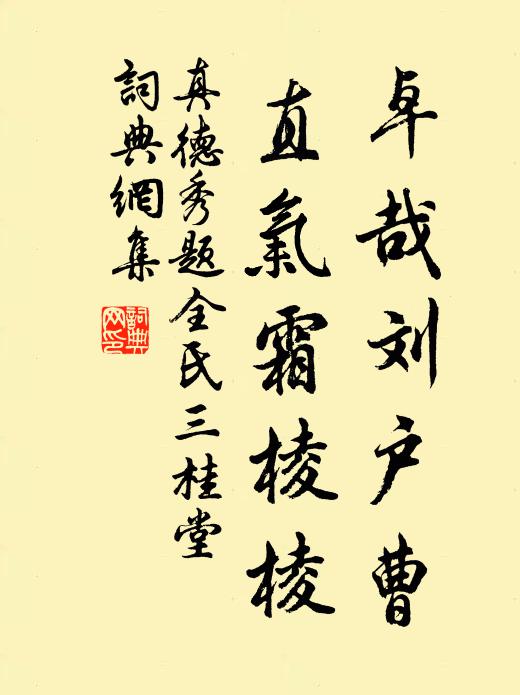 卓哉刘户曹
直氣霜棱棱
真德秀题全氏三桂堂
詞典網集
詞典网印